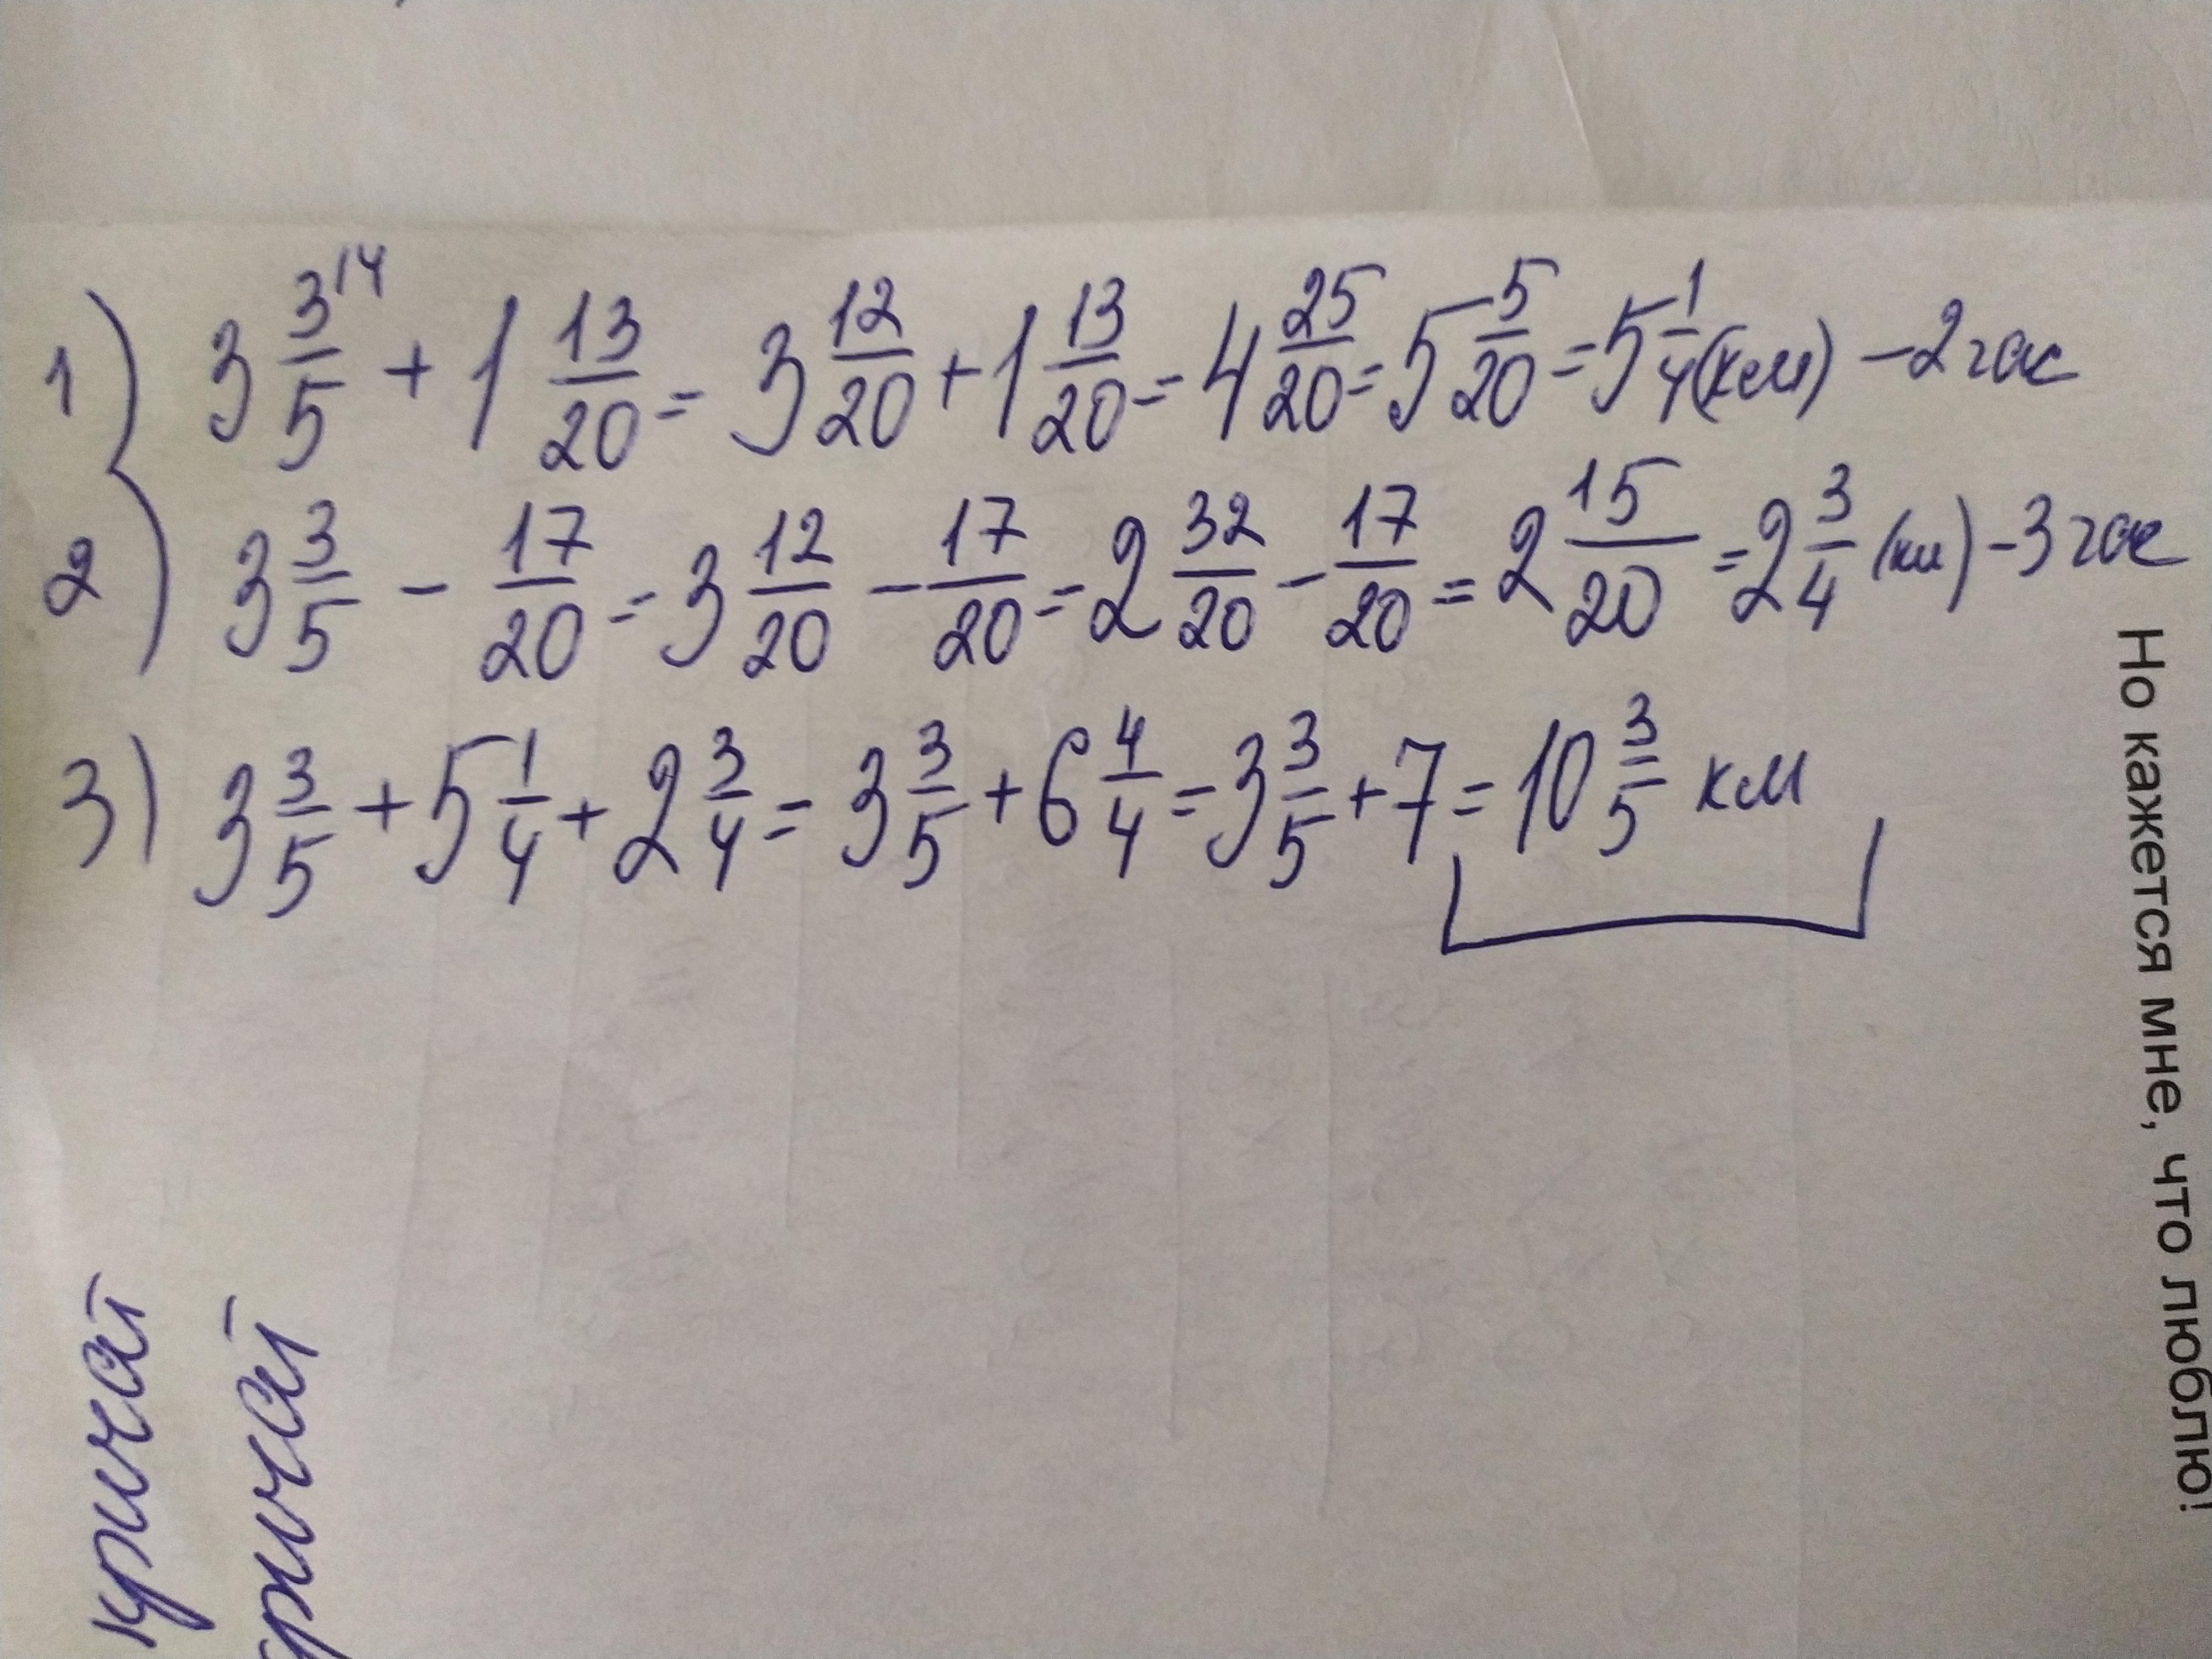 1) 3 3/5 ^14 + 1 13/20 = 3 12/20 + 1 13/20 = 4 25/20 = 5 5/20 = 5 1/4 (км) – 2 час
2) 3 3/5 – 17/20 = 3 12/20 – 17/20 = 2 32/20 – 17/20 = 2 15/20 = 2 3/4 (км) – 3 час
3) 3 3/5 + 5 1/4 + 2 3/4 = 3 3/5 + 6 4/4 = 3 3/5 + 7 = 10 3/5 км
Но кажется мне, что люблю!
кричат
кричат